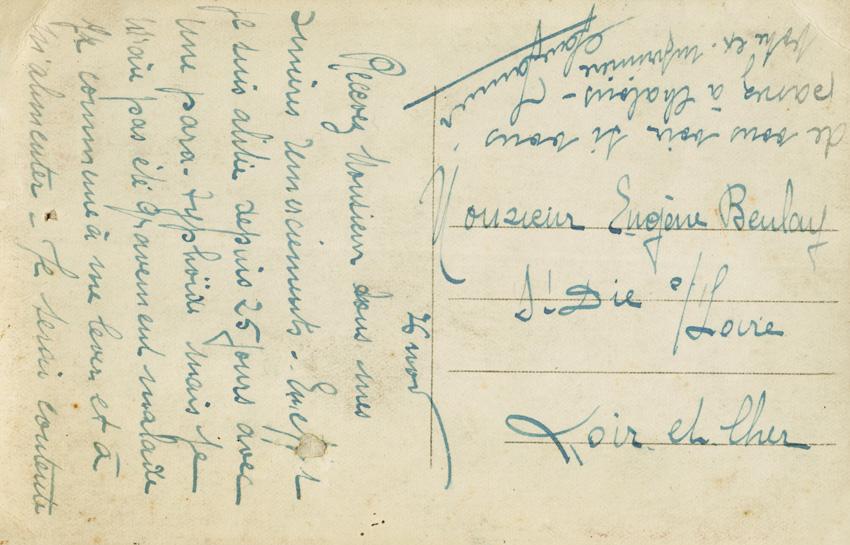 26 nov
Recevez Monsieur tous mes
sincères remerciements. En effet
je suis alitée depuis 25 jours avec
une para-typhoïde mais je
n'ai pas été gravement malade
Je commence à me lever et à
m'alimenter - Je serai contente
de vous voir si vous
passez à Chalons -
Votre ex. infirmière
Monsieur Eugène Beulay
St. Dié s/
Loire
Loir et Cher